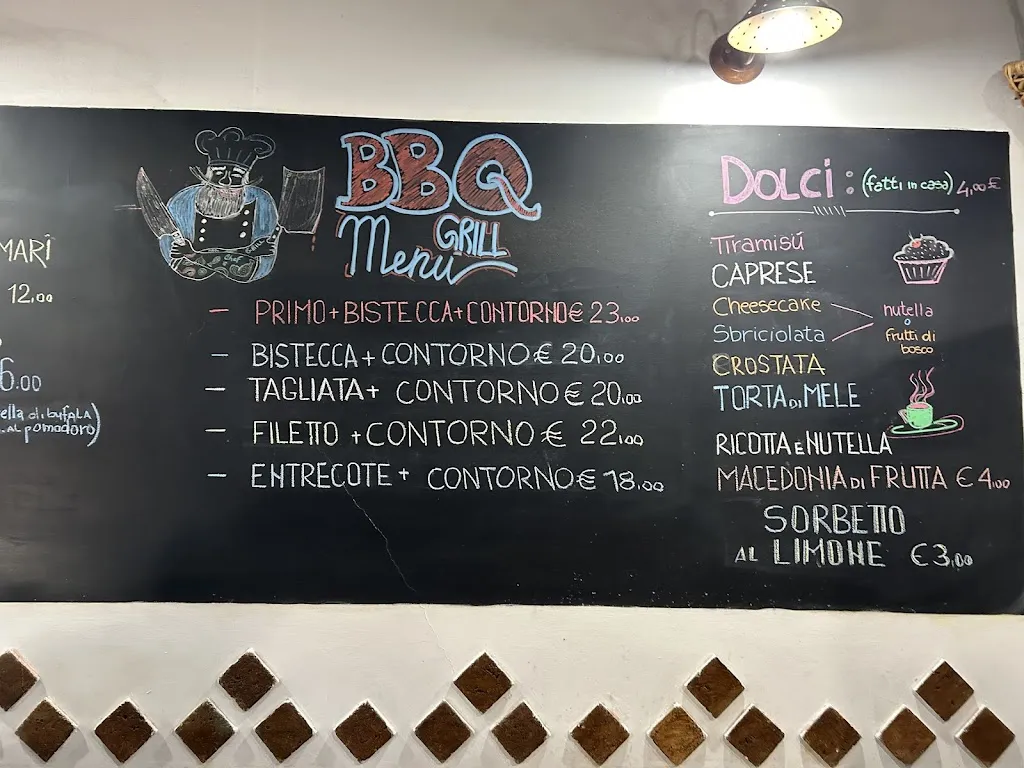 MARI
12.00
6.00
ella di bufala
al pomodoro)
BBQ
GRILL
Menu
- PRIMO + BISTECCA + CONTORNO € 23,00
- BISTECCA + CONTORNO € 20,00
- TAGLIATA + CONTORNO € 20,00
- FILETTO + CONTORNO € 22,00
- ENTRECOTE + CONTORNO € 18,00
DOLCI : (fatti in casa) 4,00 €
Tiramisú
CAPRESE
Cheesecake
Sbriciolata
nutella
o
frutti di
bosco
CROSTATA
TORTA DI MELE
RICOTTA E NUTELLA
MACEDONIA DI FRUTTA € 4,00
SORBETTO
AL LIMONE € 3,00